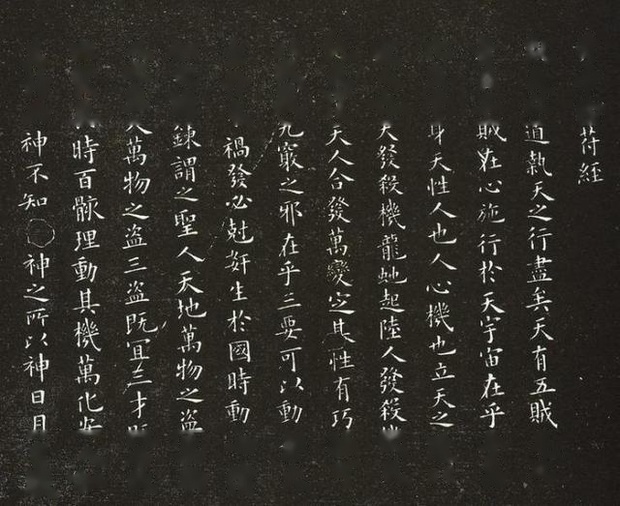 符經
道執天之行盡矣天有五賊
賊在心施行於天宇宙在乎
身天性人也人心機也立天之
天發殺機龍虵起陸人發殺機
天人合發萬變定基性有巧
九竅之邪在乎三要可以動
禍發必尅奸生於國時動
鍊謂之聖人天地萬物之盜
人萬物之盜三盜既宜三才既
時百骸理動其機萬化安
神不知神之所以神日月